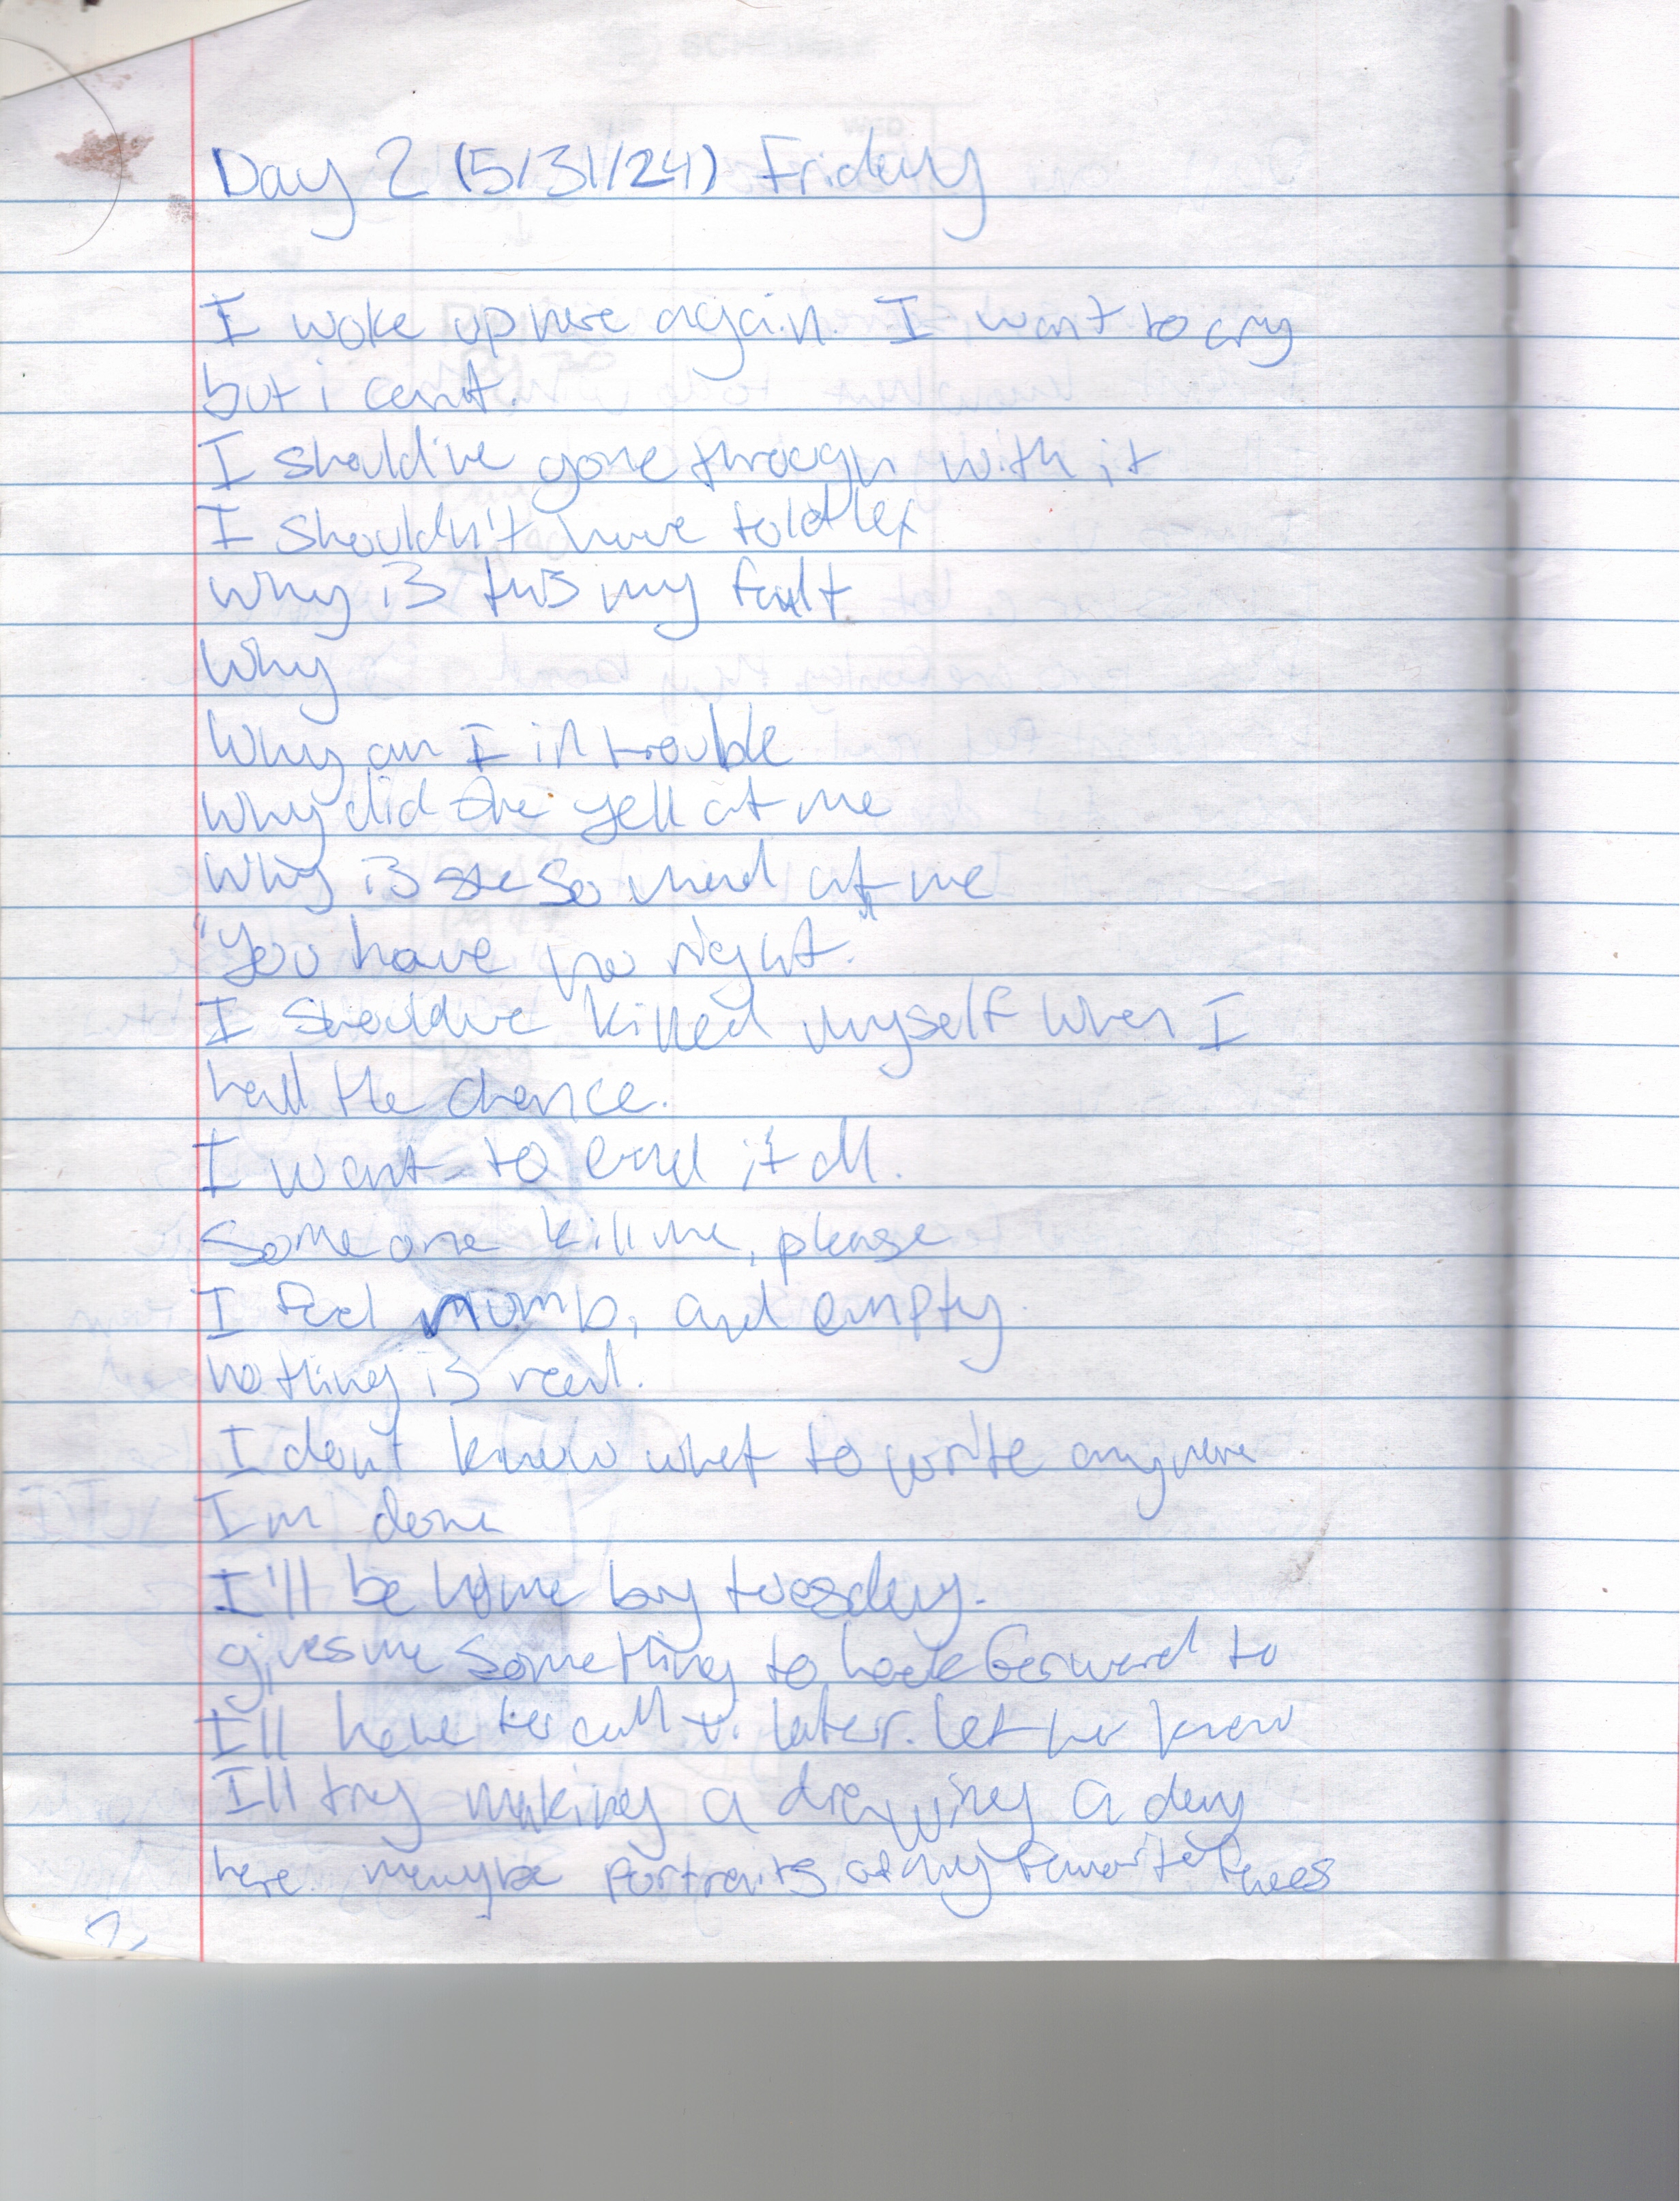 Day 2 (5/31/24) Friday
I woke up here again. I want to cry
but i can't.
I should've gone through with it
I shouldn't have told lex
why is this my fault
Why
Why am I in trouble
Why did she yell at me
Why is she so mad at me
"You have no right."
I should've killed myself when I
had the chance.
I want to end it all.
Someone kill me, please
I feel numb, and empty.
nothing is real.
I don't know what to write anymore
Im done
I'll be home by tuesday.
gives me something to look forward to
I'll have to call later. let her know
I'll try making a drawing a day
here. maybe portraits of my favorite